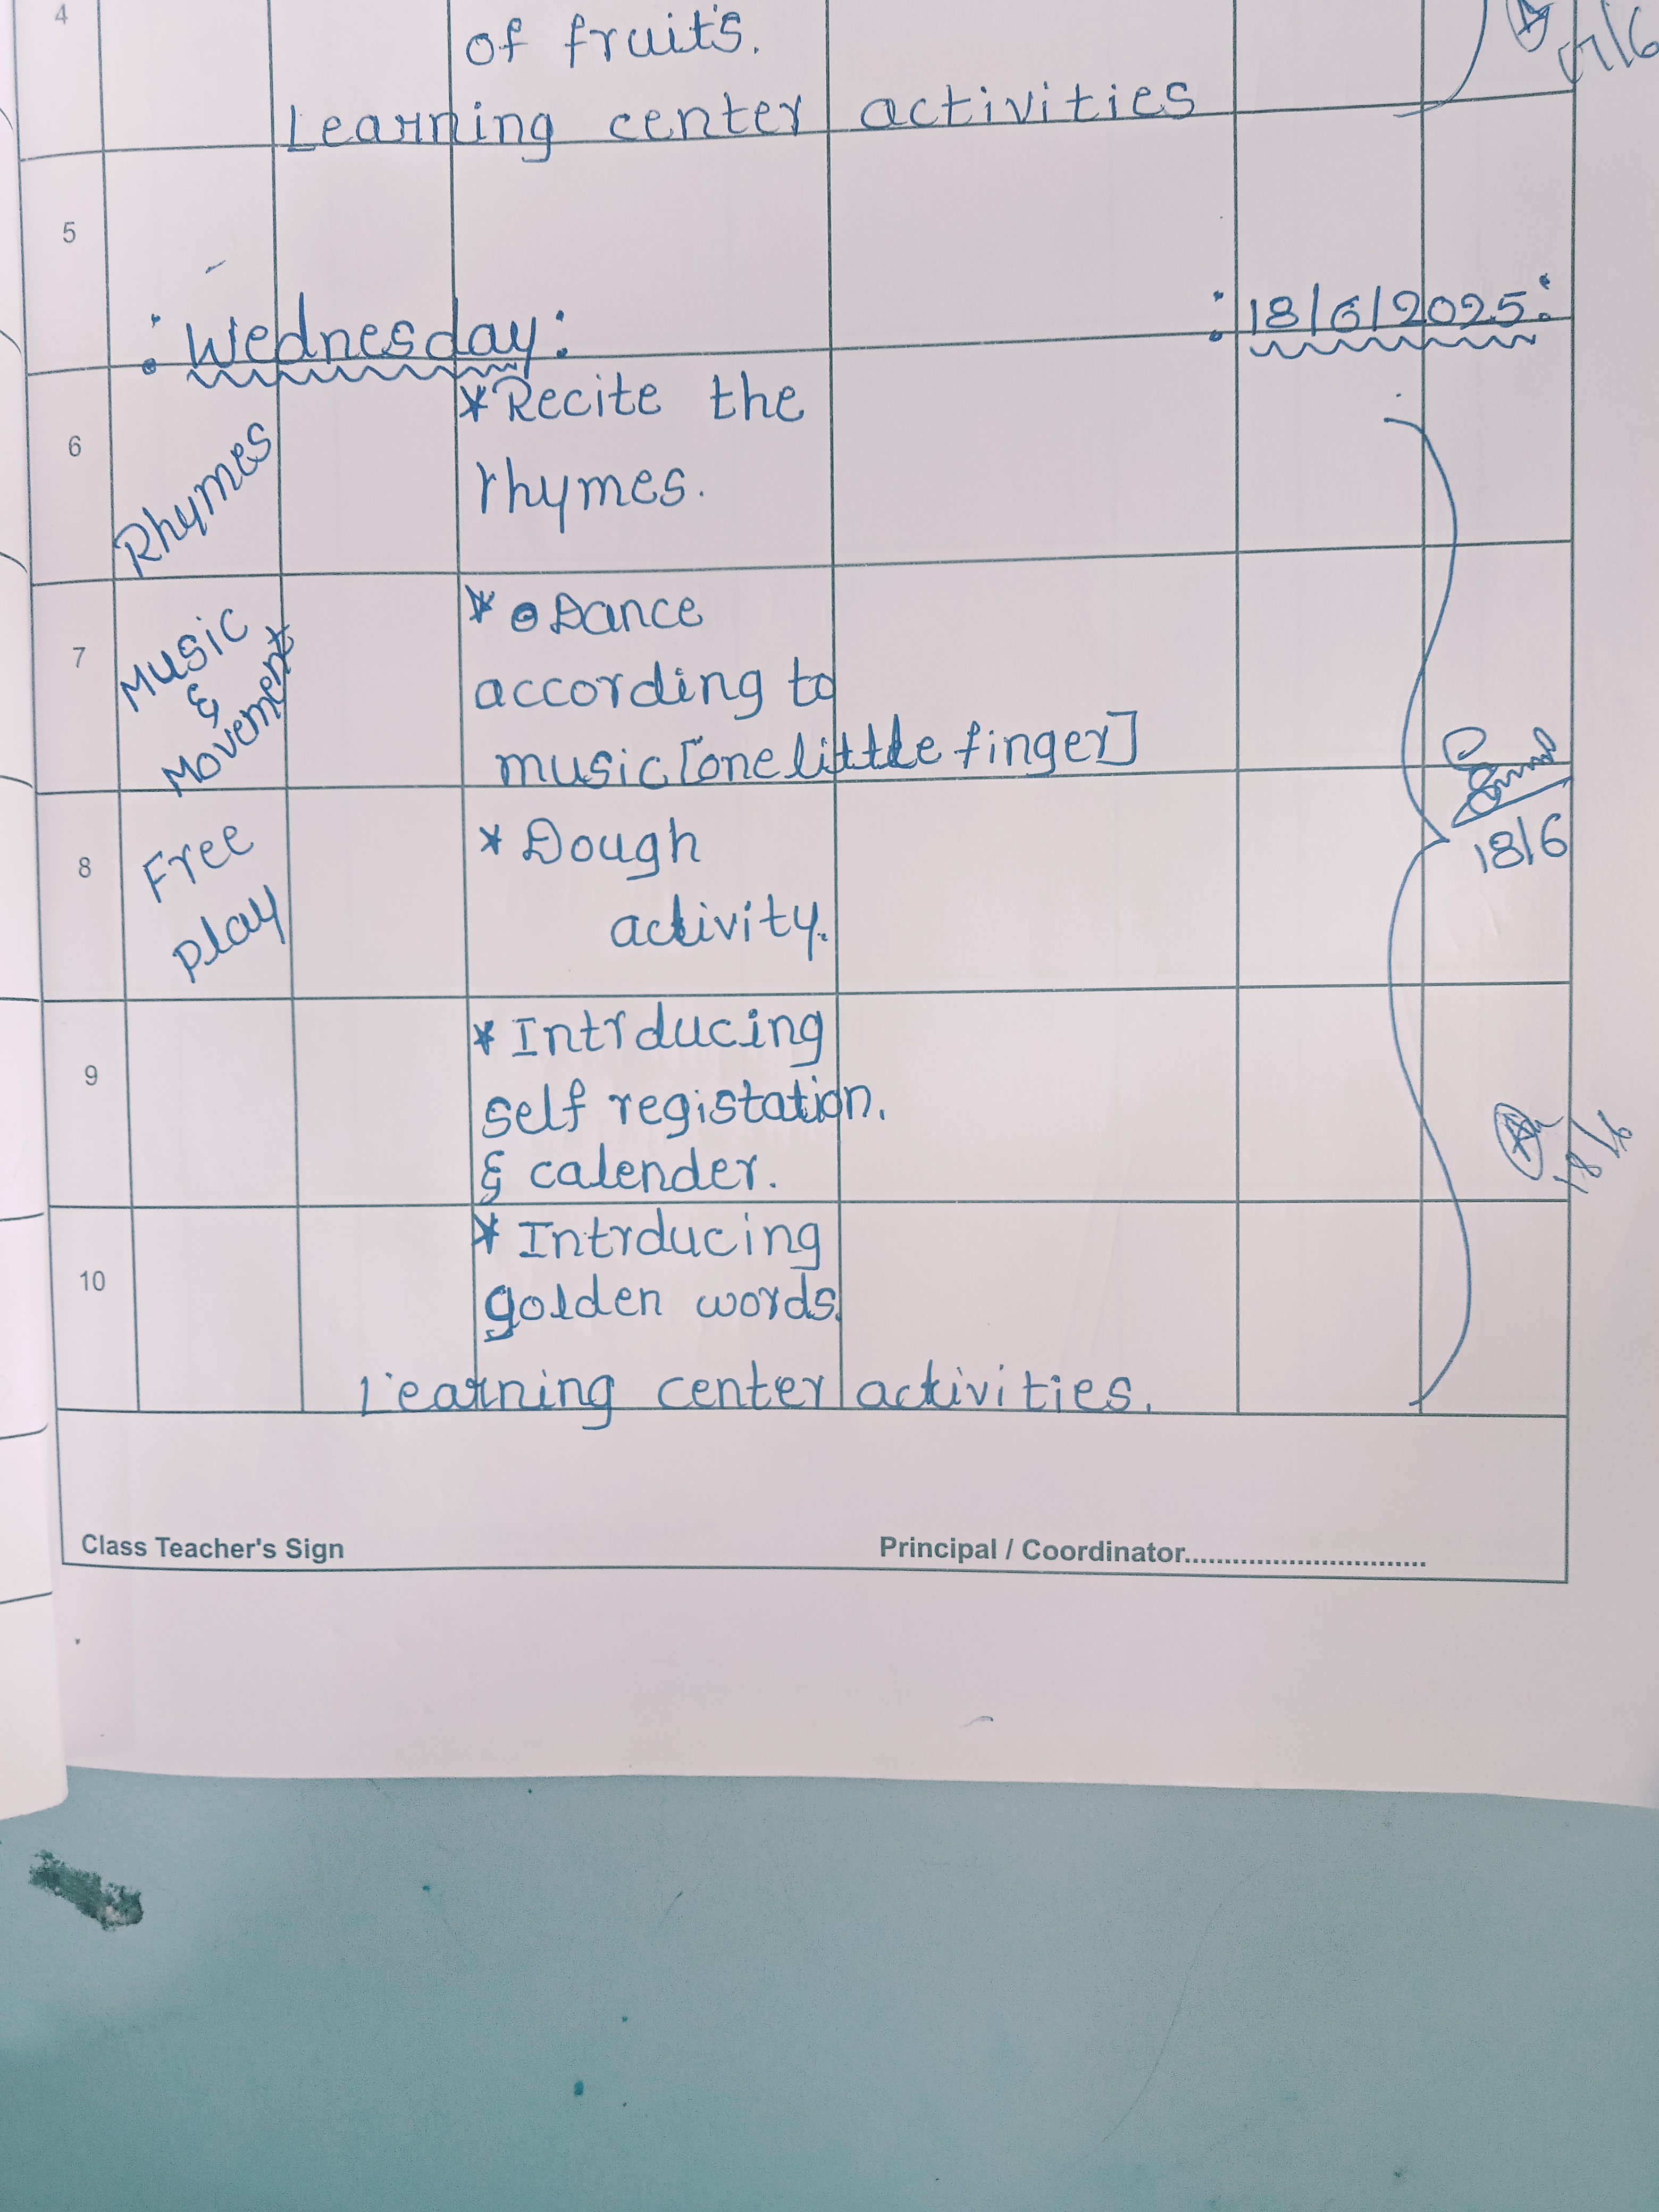 4
of fruits.
17/6
Learning center activities
5
: Wednesday:
: 18/6/2025:
6
Rhymes
*Recite the
rhymes.
7
Music
&
Movement
* Dance
according to
music [one little finger]
8
Free
play
* Dough
activity.
18/6
9
* Intrducing
self registation.
& calender.
18/6
10
* Intrducing
golden words.
Learning center activities.
Class Teacher's Sign
Principal / Coordinator..............................